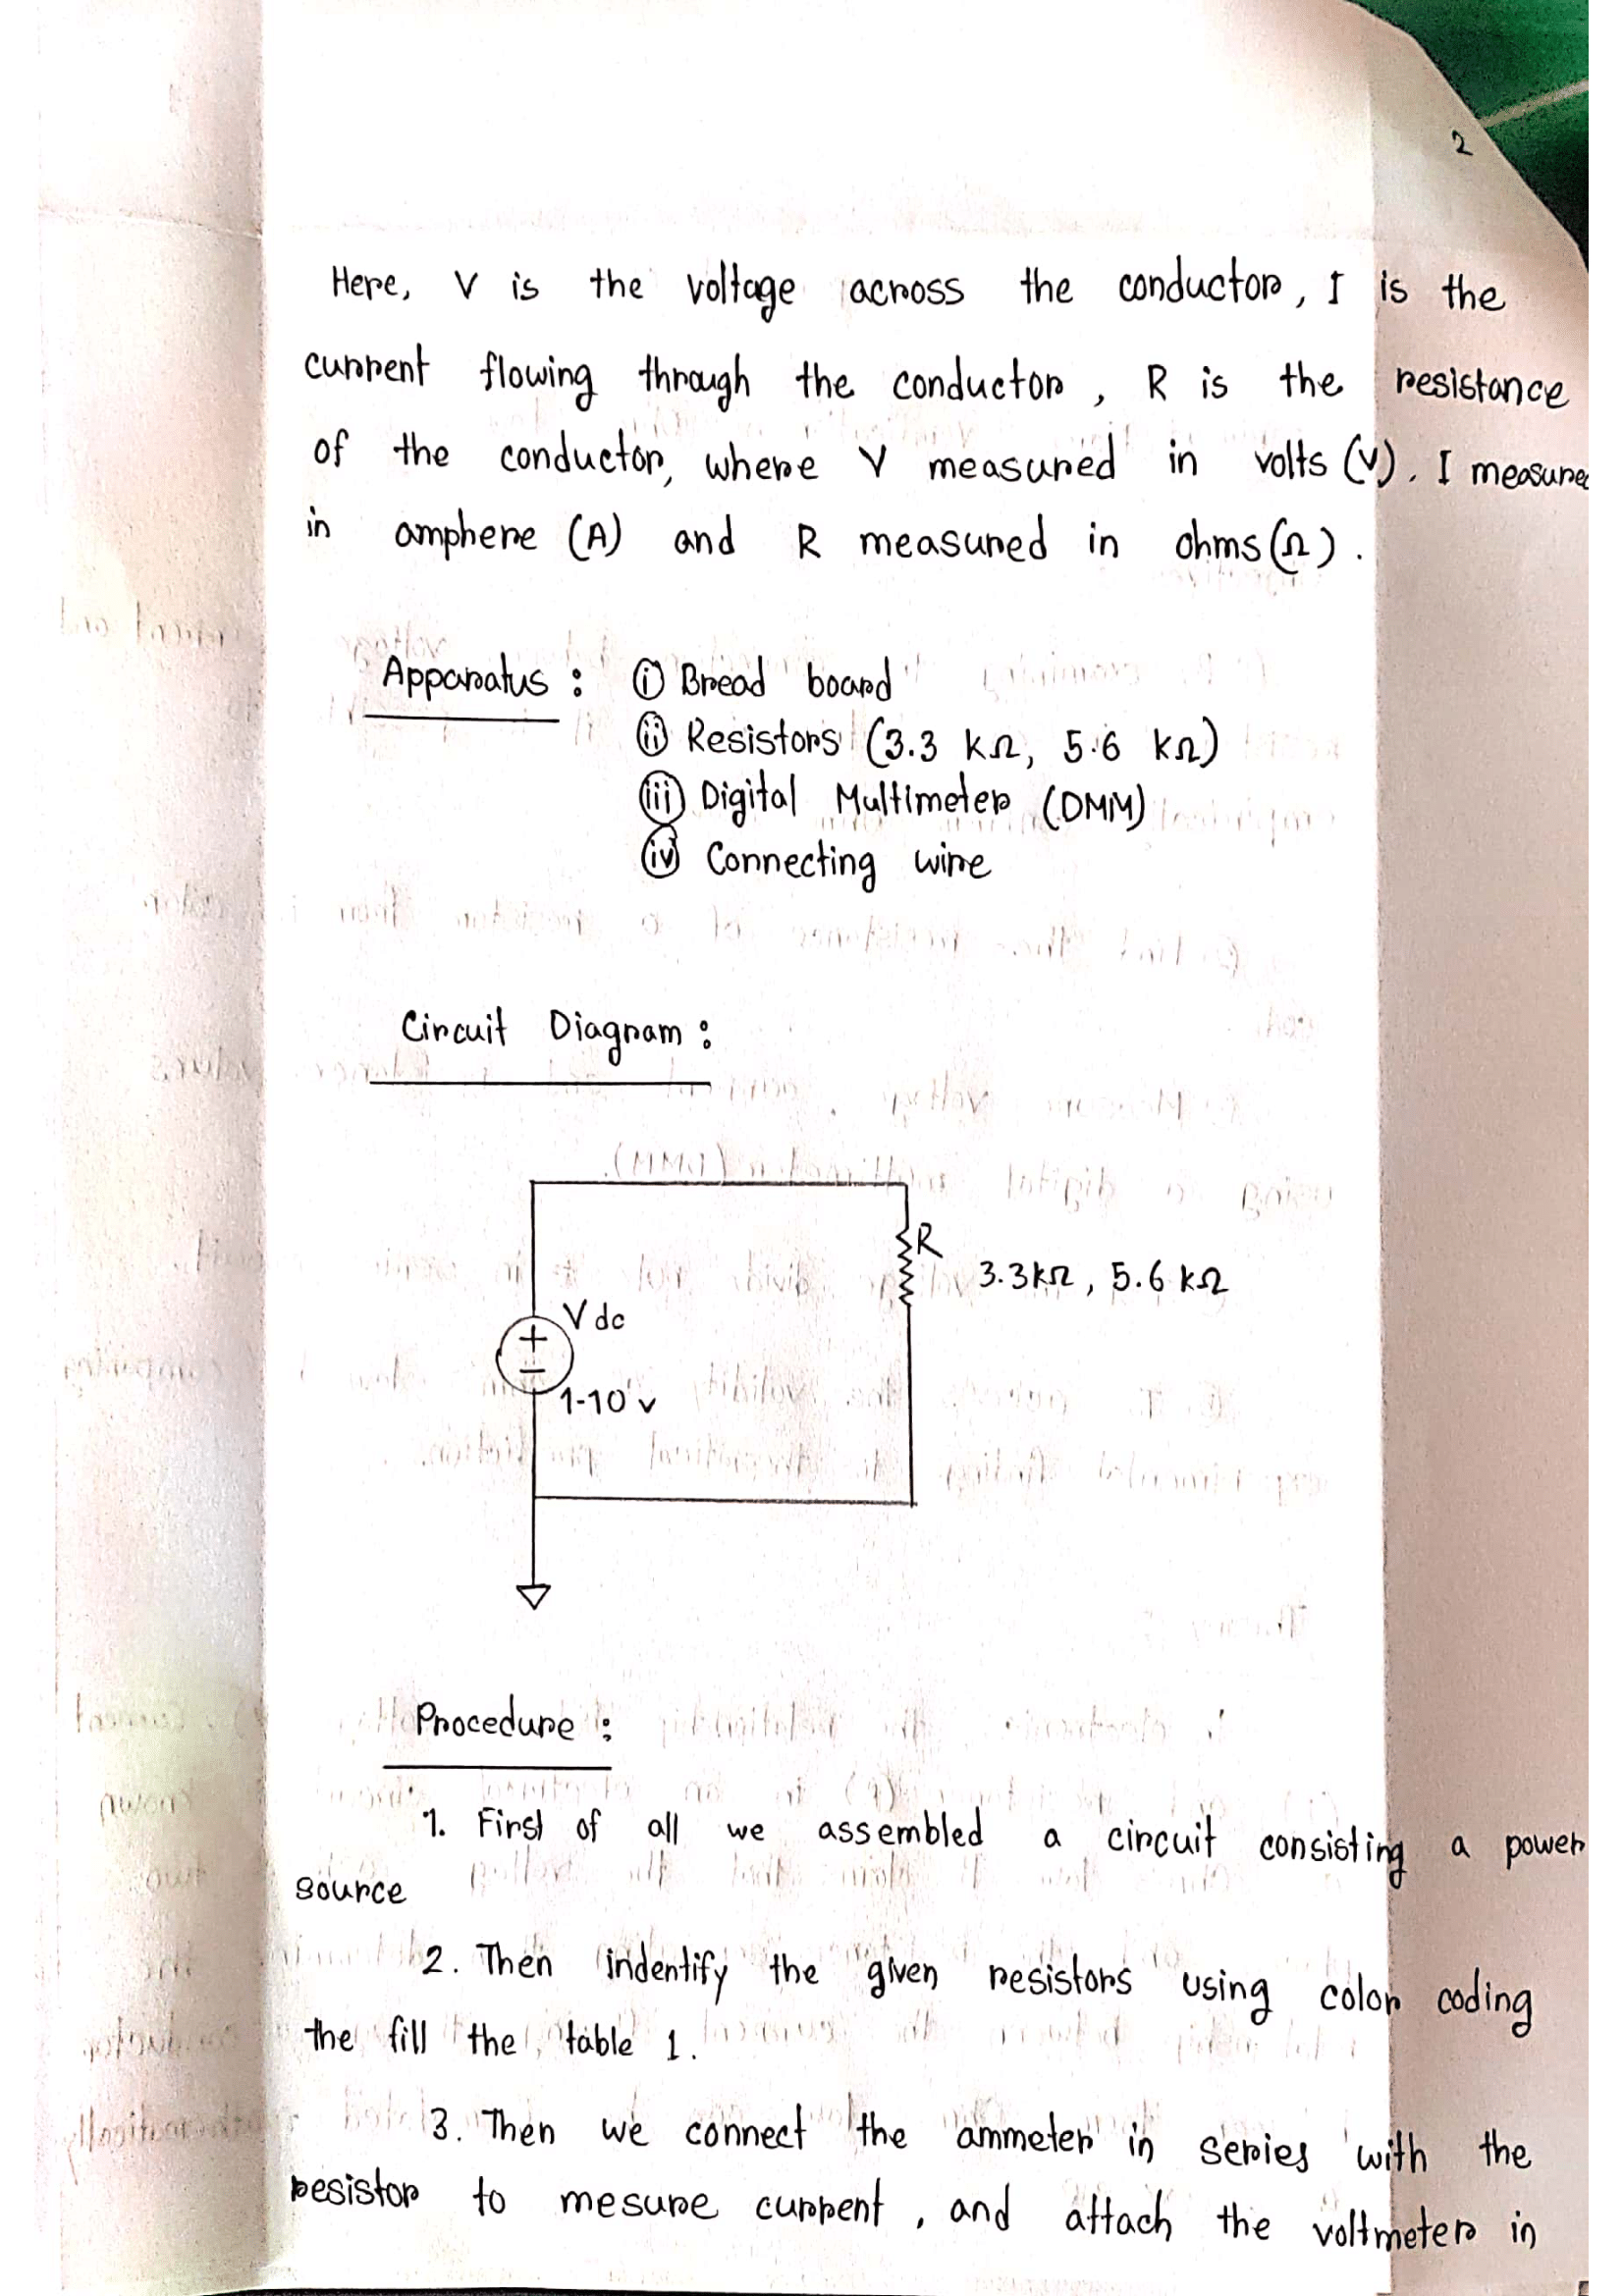 2
Here, V is the voltage across the conductor, I is the
current flowing through the conductor, R is the resistance
of the conductor, where V measured in volts (V). I measured
in amphere (A) and R measured in ohms (Ω).
Apparatus : (i) Bread board
(ii) Resistors (3.3 kΩ, 5.6 kΩ)
(iii) Digital Multimeter (DMM)
(iv) Connecting wire
Circuit Diagram :
R
3.3kΩ, 5.6 kΩ
Vdc
+
-
1-10 v
Procedure :
1. First of all we assembled a circuit consisting a power
source
2. Then indentify the given resistors using color coding
the fill the table 1.
3. Then we connect the ammeter in series with the
resistor to mesure current, and attach the voltmeter in